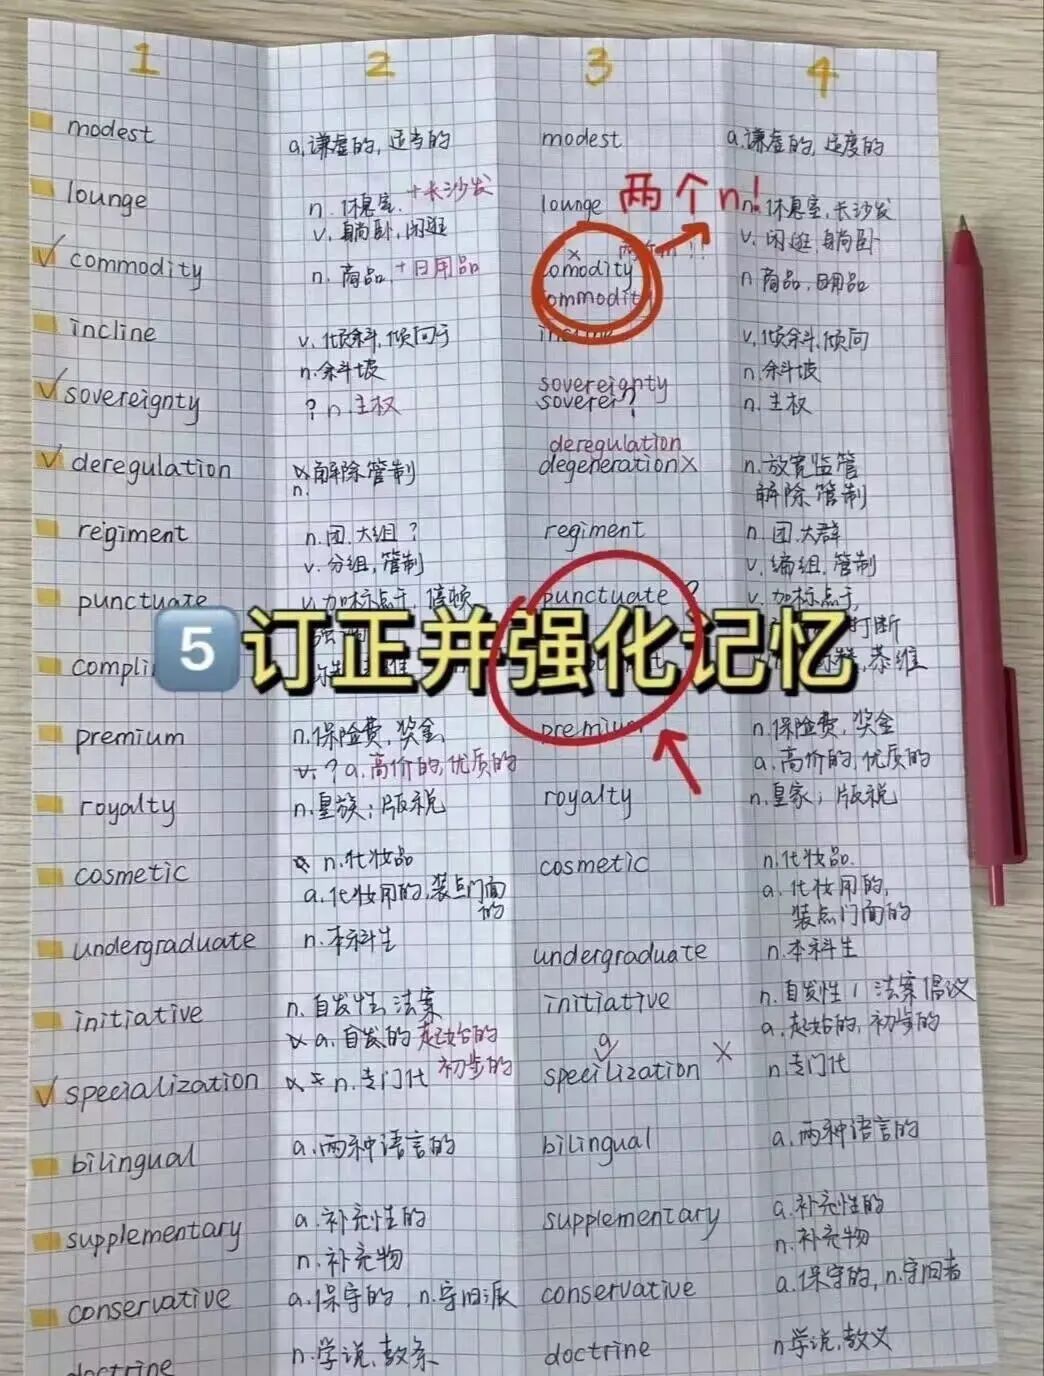 1 2 3 4
modest a.谦虚的,适当的 modest a.谦虚的,适度的
lounge n.休息室.+长沙发 lounge 两个n! n.休息室,长沙发
v.躺卧,闲逛 v.闲逛,躺卧
commodity n.商品.+日用品 comodity × n.商品,日用品
commodity
incline v.倾斜,倾向于 incline v.倾斜,倾向
n.斜坡 n.斜坡
sovereignty ? n.主权 sovereignty n.主权
soverei?
deregulation 解除管制 deregulation n.放宽监管
n. degeneration× 解除管制
regiment n.团.大组? regiment n.团.大群
v.分组,管制 v.编组,管制
punctuate v.加标点于,停顿 punctuate ? v.加标点于,
打断
5订正并强化记忆
compli 恭维
premium n.保险费,奖金 premium n.保险费,奖金
v.? a.高价的,优质的 a.高价的,优质的
royalty n.皇族;版税 royalty n.皇家;版税
cosmetic n.化妆品 cosmetic n.化妆品.
a.化妆用的,装点门面的 a.化妆用的,
装点门面的
undergraduate n.本科生 undergraduate n.本科生
initiative n.自发性,法案 initiative n.自发性/法案倡议
a.自发的 起始的 a.起始的,初步的
初步的
specialization n.专门化 specilization a × n.专门化
bilingual a.两种语言的 bilingual a.两种语言的
supplementary a.补充性的 supplementary a.补充性的
n.补充物 n.补充物
conservative a.保守的,n.守旧派 conservative a.保守的,n.守旧者
doctrine n.学说,教条 doctrine n学说,教义